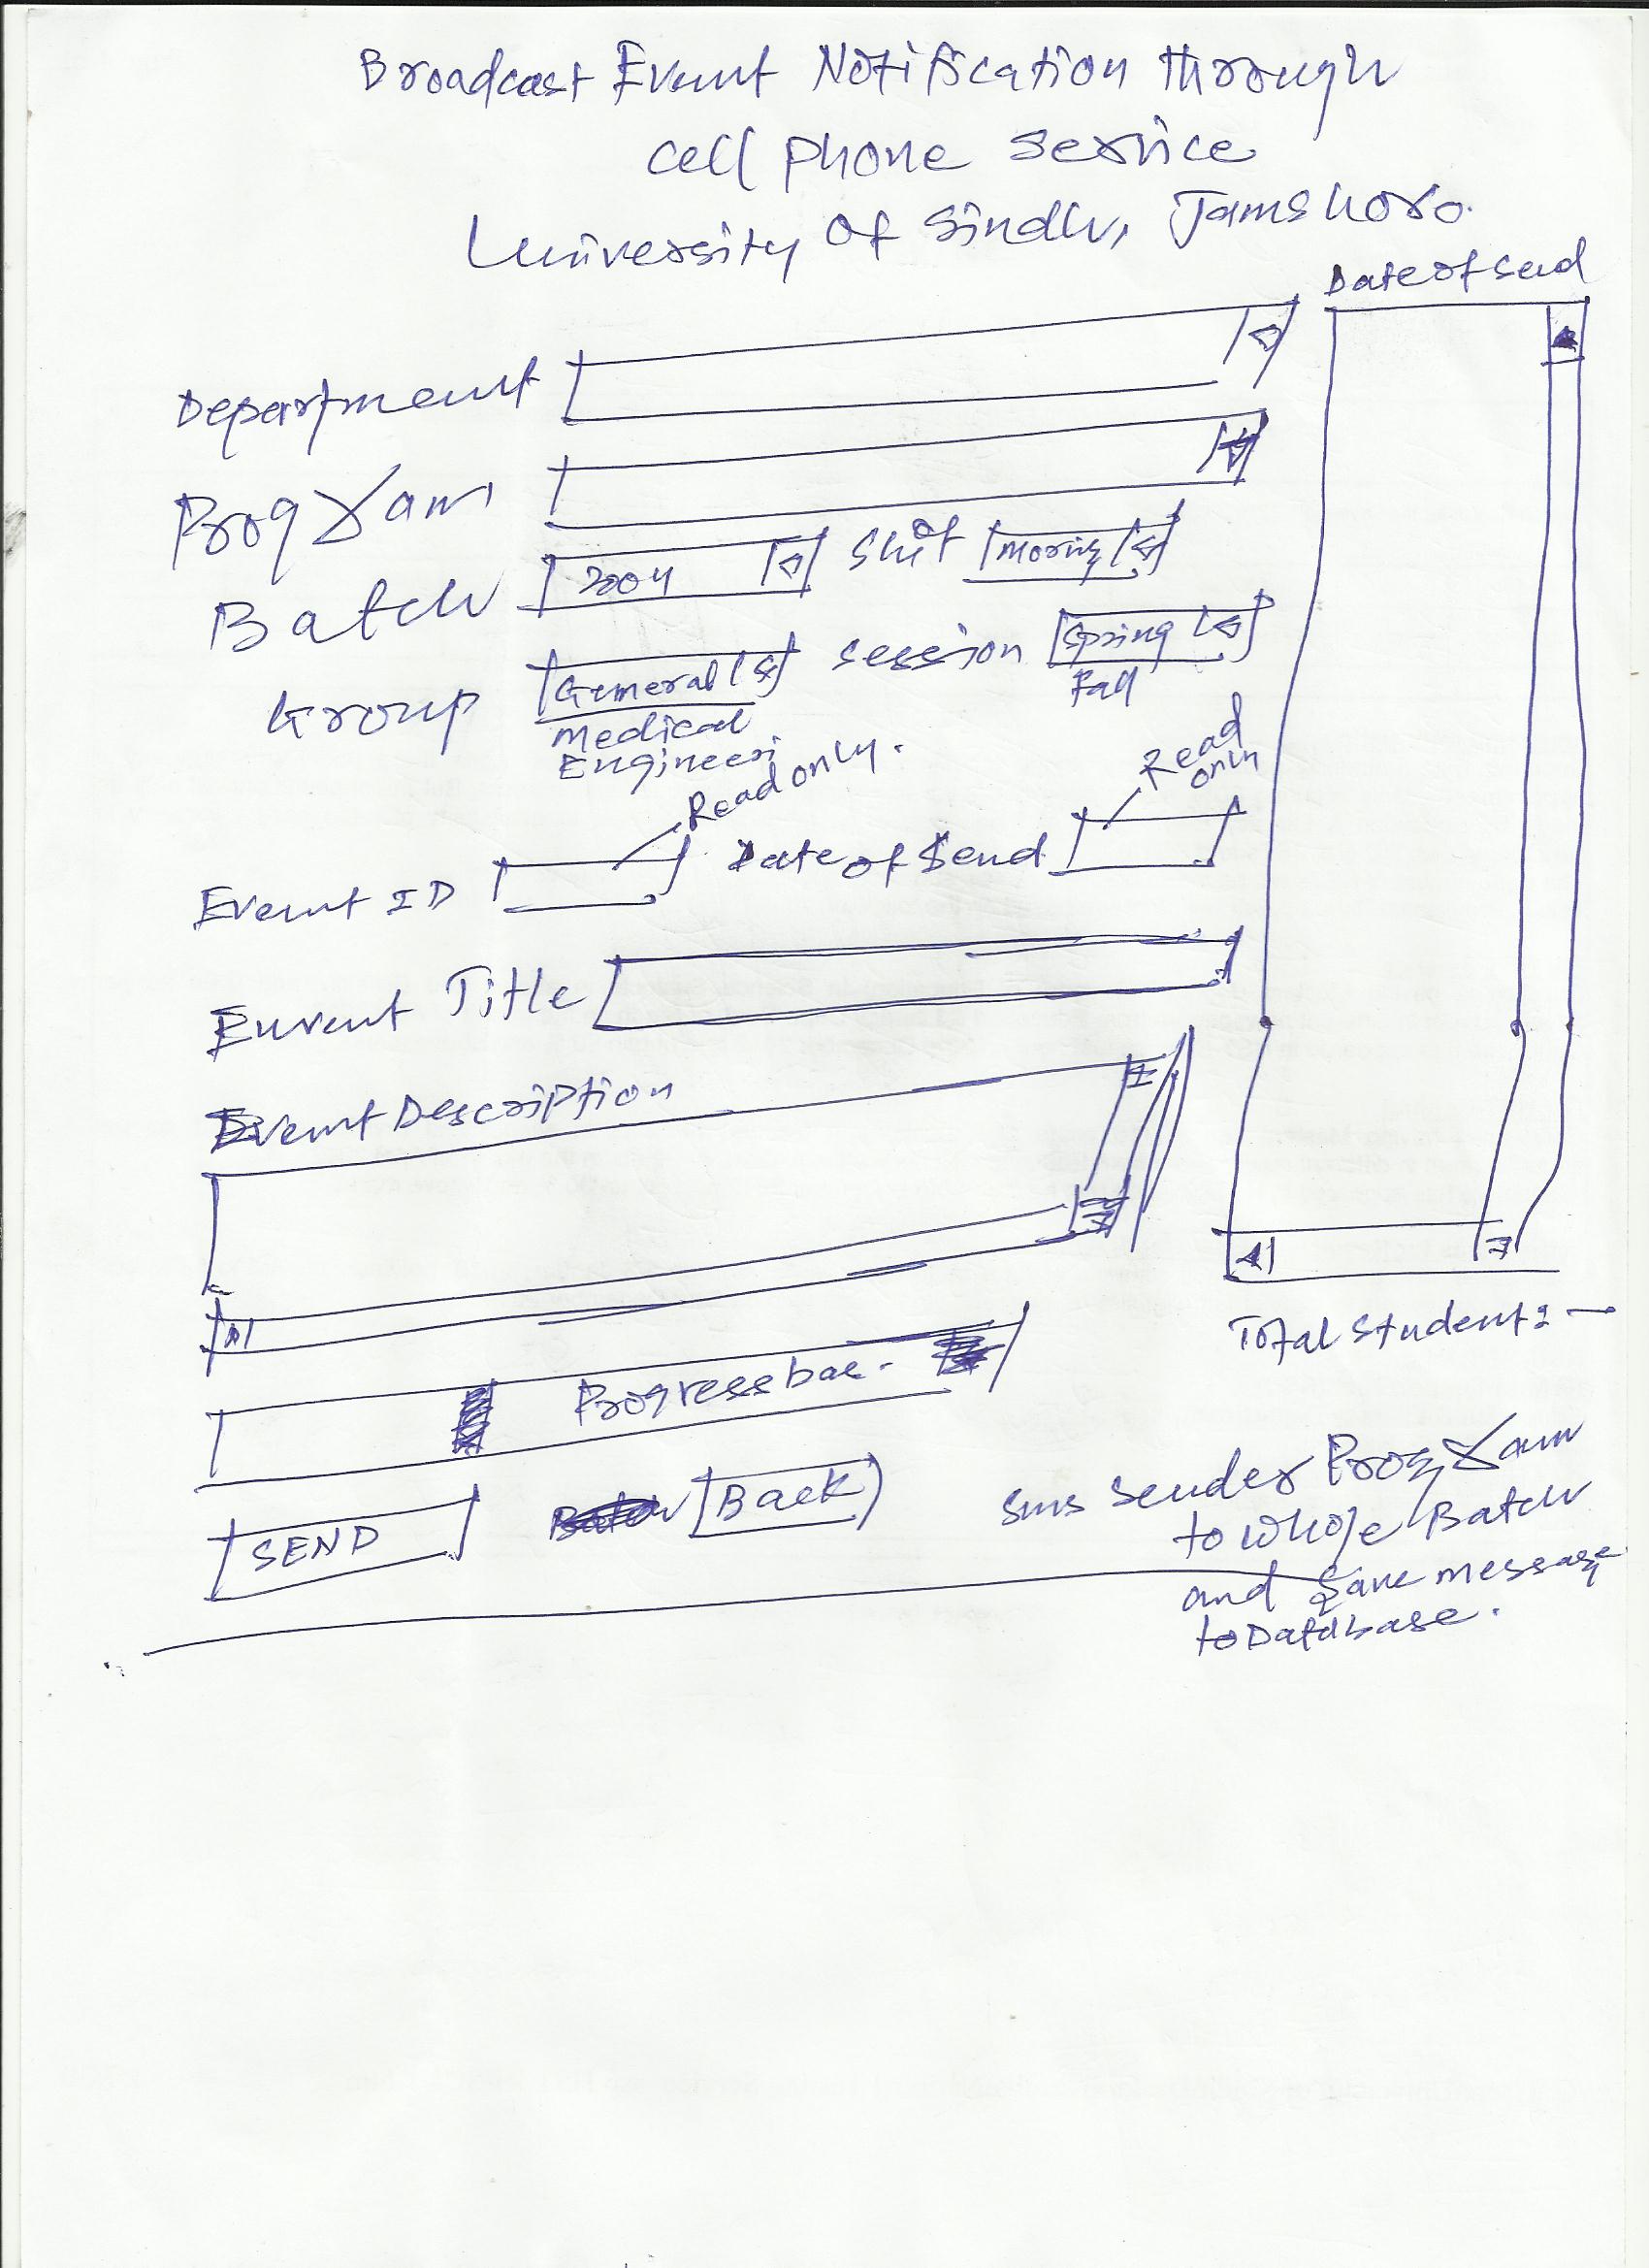 Broadcast Event Notification through
cell phone service
University Of Sindh, Jamshoro.
Date of send
Department
Program
Batch 2004 Shift Morning
Group General session Spring
Medical Fall
Engineeri
Read only.
Read only
Event ID Date of Send
Euvent Title
Event Description
Progress bar.
Total Student :-
SEND Back
sms sender Program
to whole Batch
and save message
to Database.